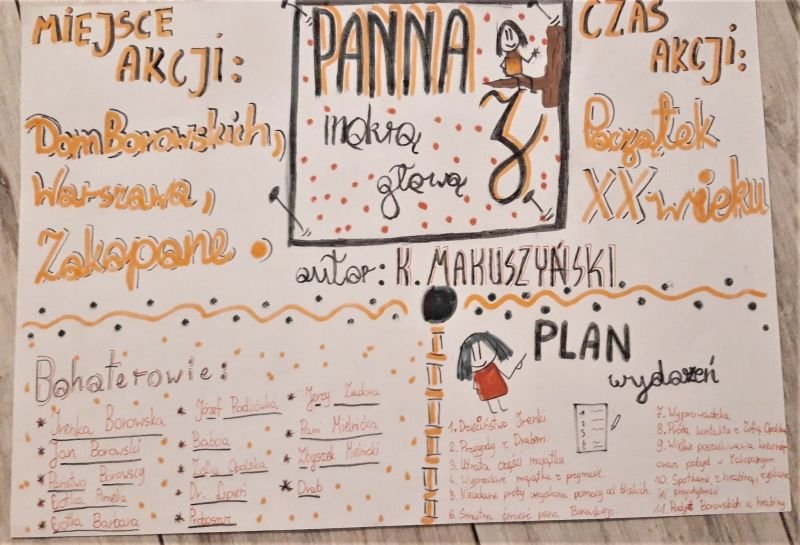 MIEJSCE
AKCJI:
Dom Borowskich,
Warszawa,
Zakopane.
PANNA
z
mokrą
głową
autor: K. MAKUSZYŃSKI
CZAS
AKCJI:
Początek
XX wieku
Bohaterowie:
* Irenka Borowska
* Jan Borowski
* Państwo Borowscy
* Ciotka Amelia
* Ciotka Barbara
* Józef Podkówka
* Babcia
* Zofia Opolska
* Dr. Lipień
* Proboszcz
* Jerzy Zawora
* Pani Mielnicka
* Zbyszek Mielnicki
* Drab
PLAN
wydażeń
1. Dzieciństwo Irenki.
2. Przygody z Drabem.
3. Utrata części majątku.
4. Wyprzedaż majątku z przymusu.
5. Nieudane próby uzyskania pomocy od bliskich.
6. Smutna śmierć pana Borowskiego.
7. Wyprowadzka
8. Próba kontaktu z Zofią Opolską
9. Wielkie poszukiwania krewnego
oraz pobyt w Zakopanym
10. Spotkanie z hrabiną, zyskanie
jej przychylności
11. Pobyt Borowskich u hrabiny.